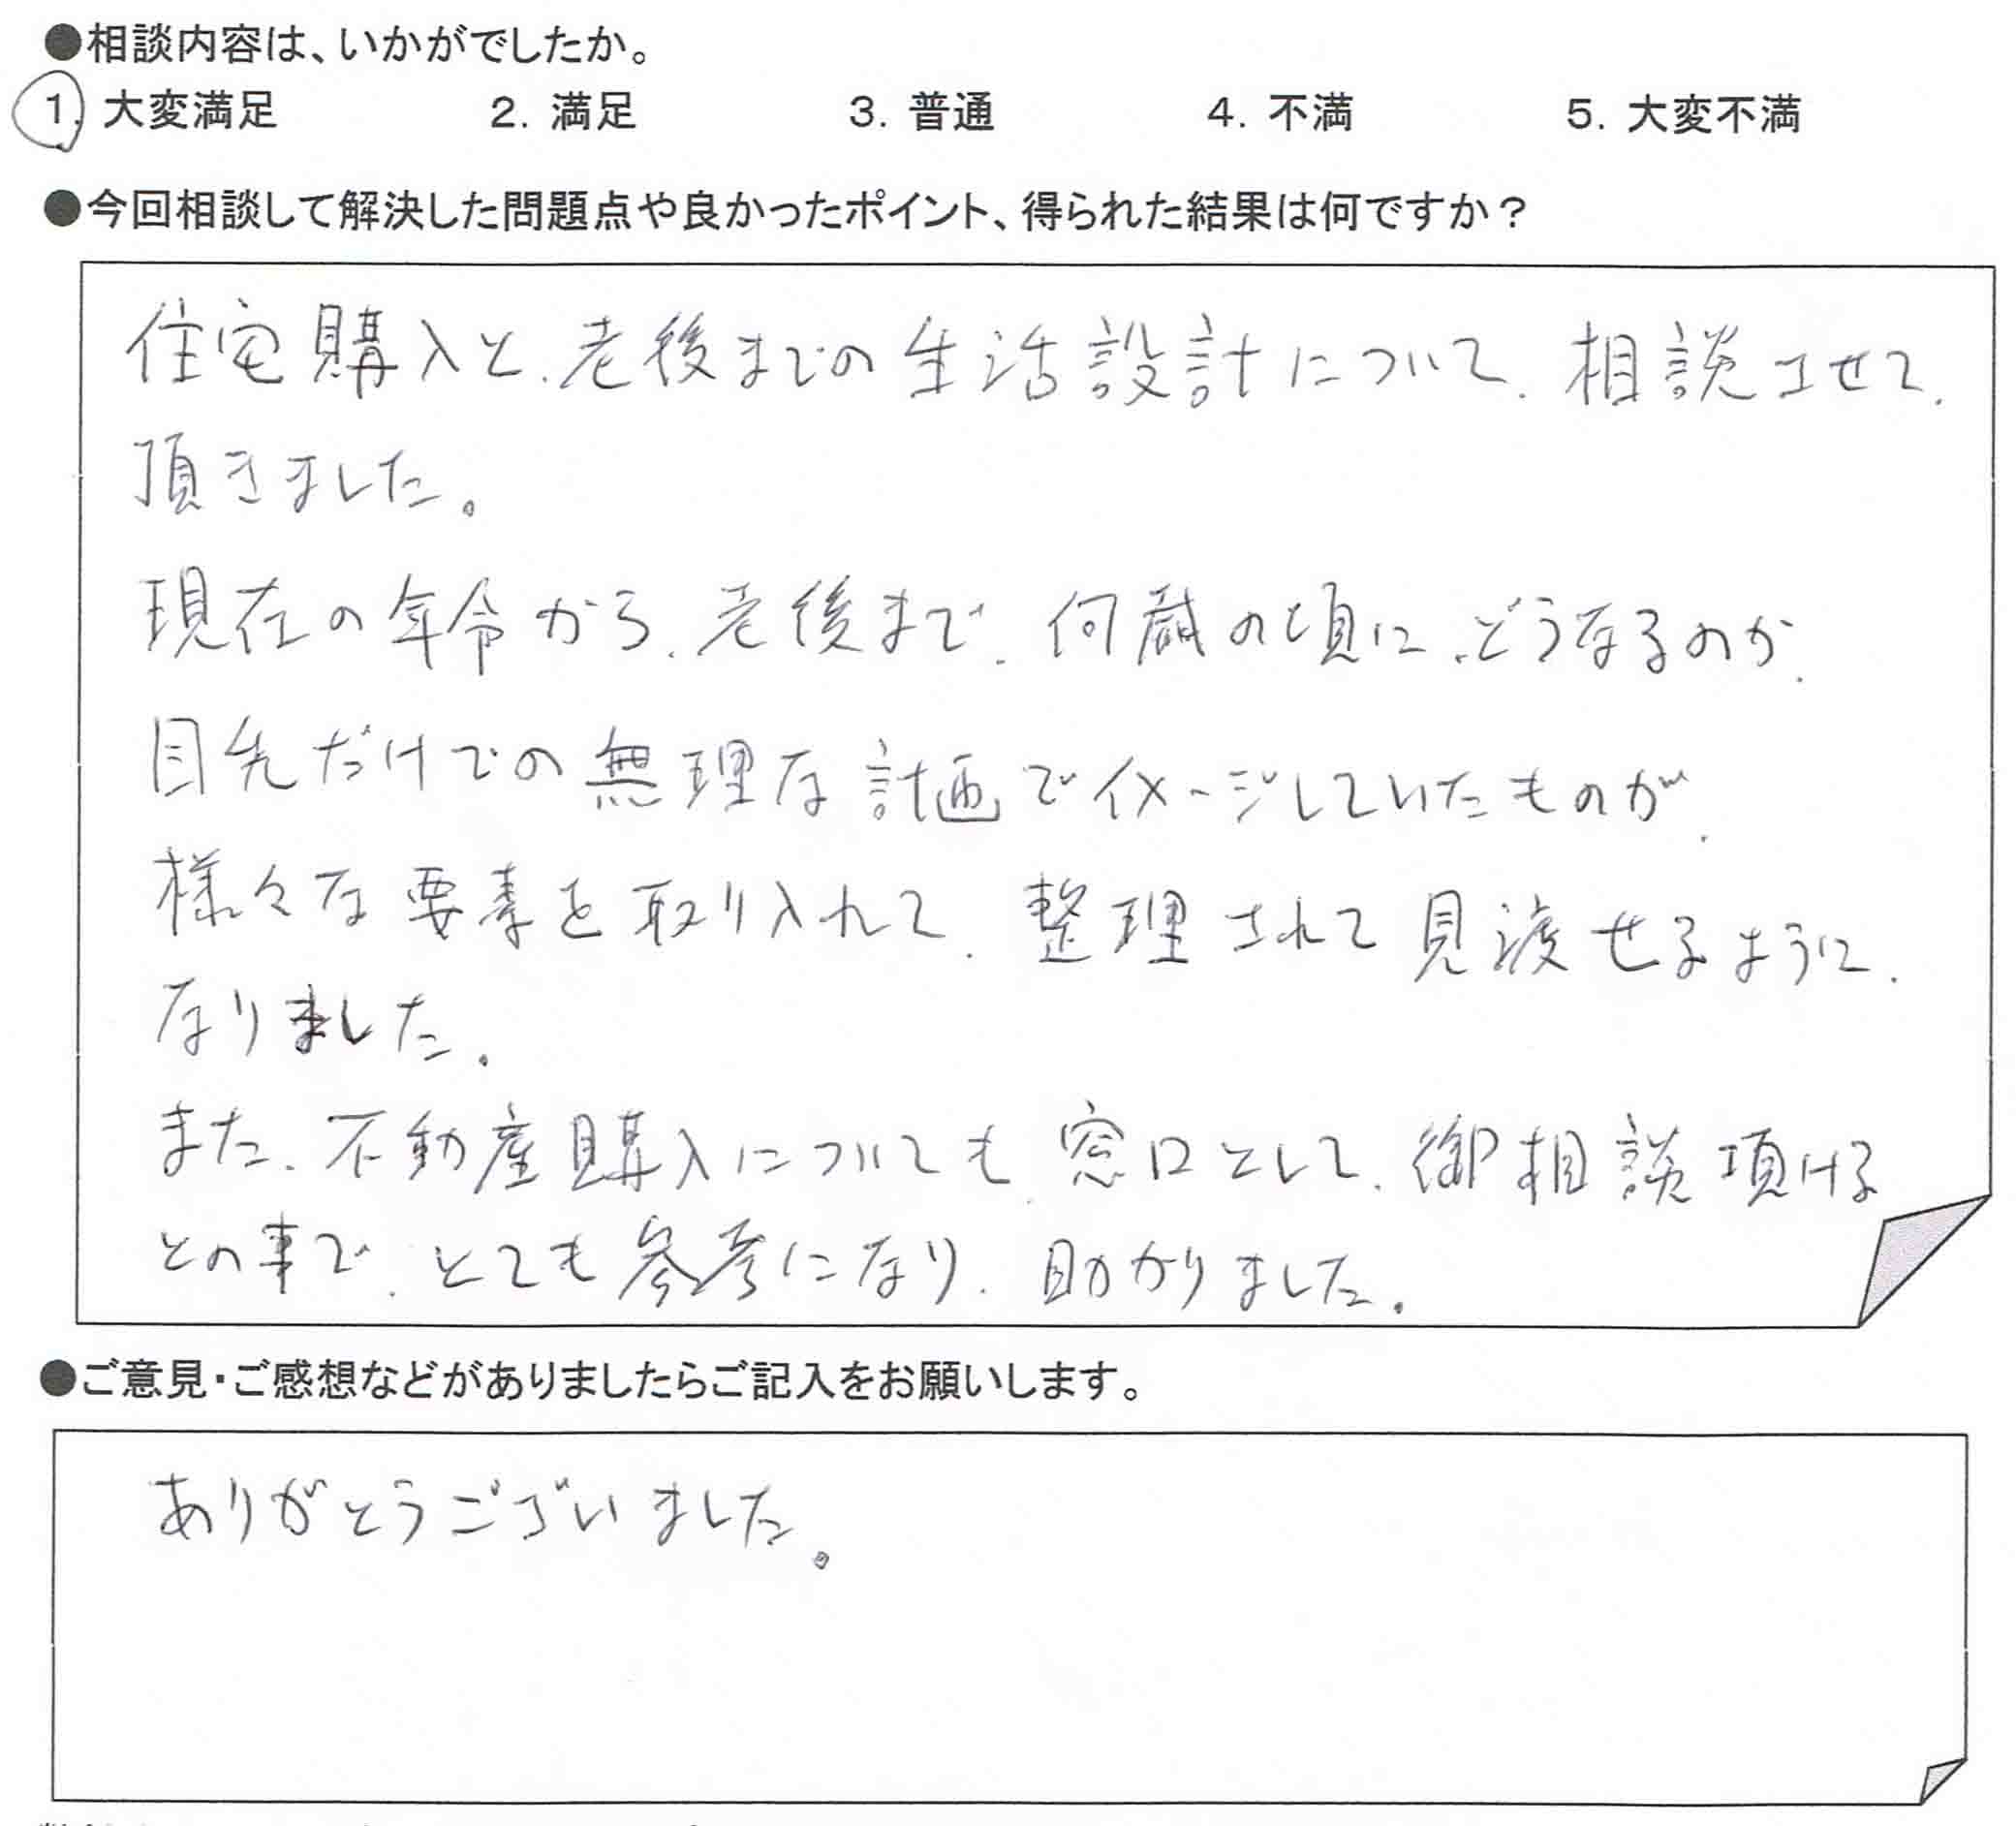 ●相談内容は、いかがでしたか。
1. 大変満足 2. 満足 3. 普通 4. 不満 5. 大変不満
●今回相談して解決した問題点や良かったポイント、得られた結果は何ですか？
住宅購入と、老後までの生活設計について、相談させて、
頂きました。
現在の年令から、老後まで、何歳の頃に、どうなるのか、
目先だけでの無理な計画でイメージしていたものが、
様々な要素を取り入れて、整理されて見渡せるように、
なりました。
また、不動産購入についても、窓口として、御相談頂ける
との事で、とても参考になり、助かりました。
●ご意見・ご感想などがありましたらご記入をお願いします。
ありがとうございました。